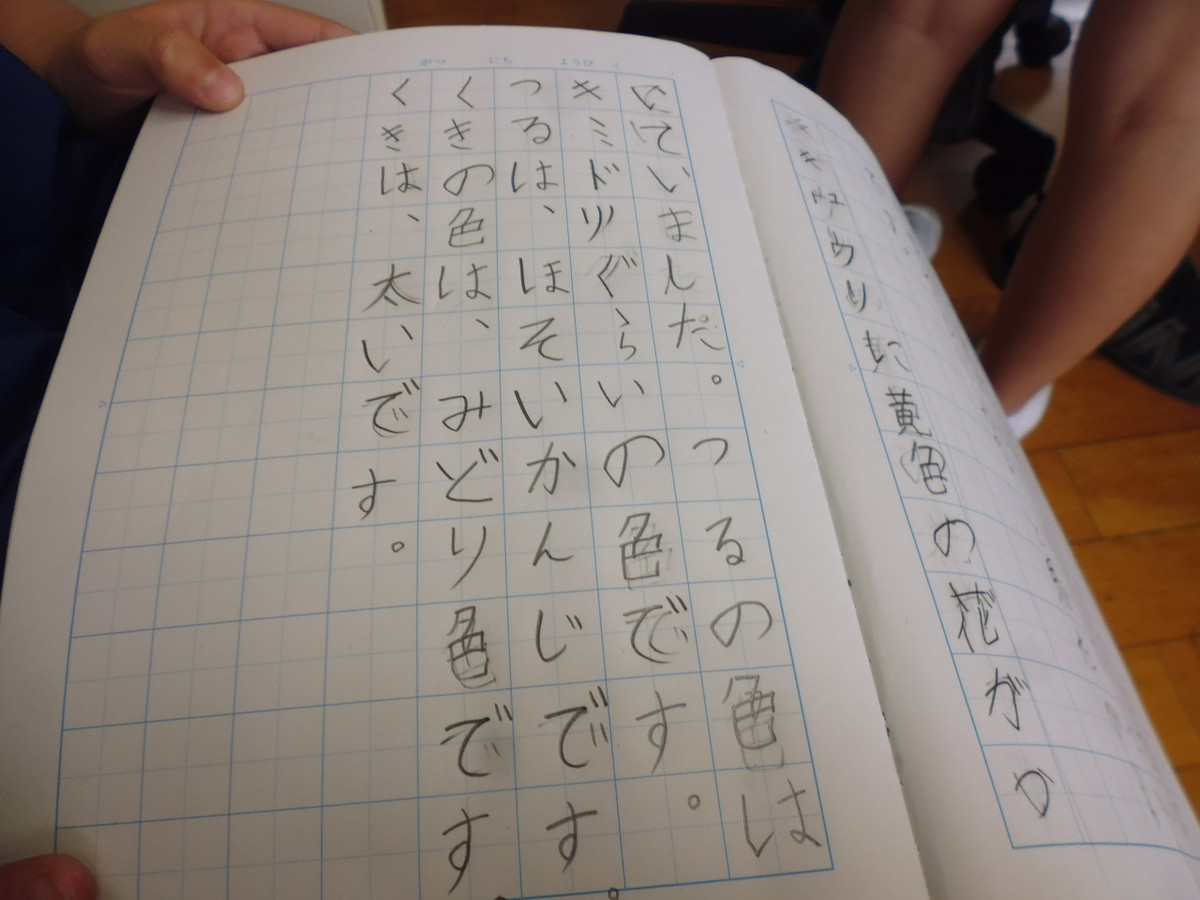 キュウリに黄色の花がか
にていました。つるの色は
キミドリぐらいの色です。
つるは、ほそいかんじです。
くきの色は、みどり色です。
くきは、太いです。
がつ にち ようび